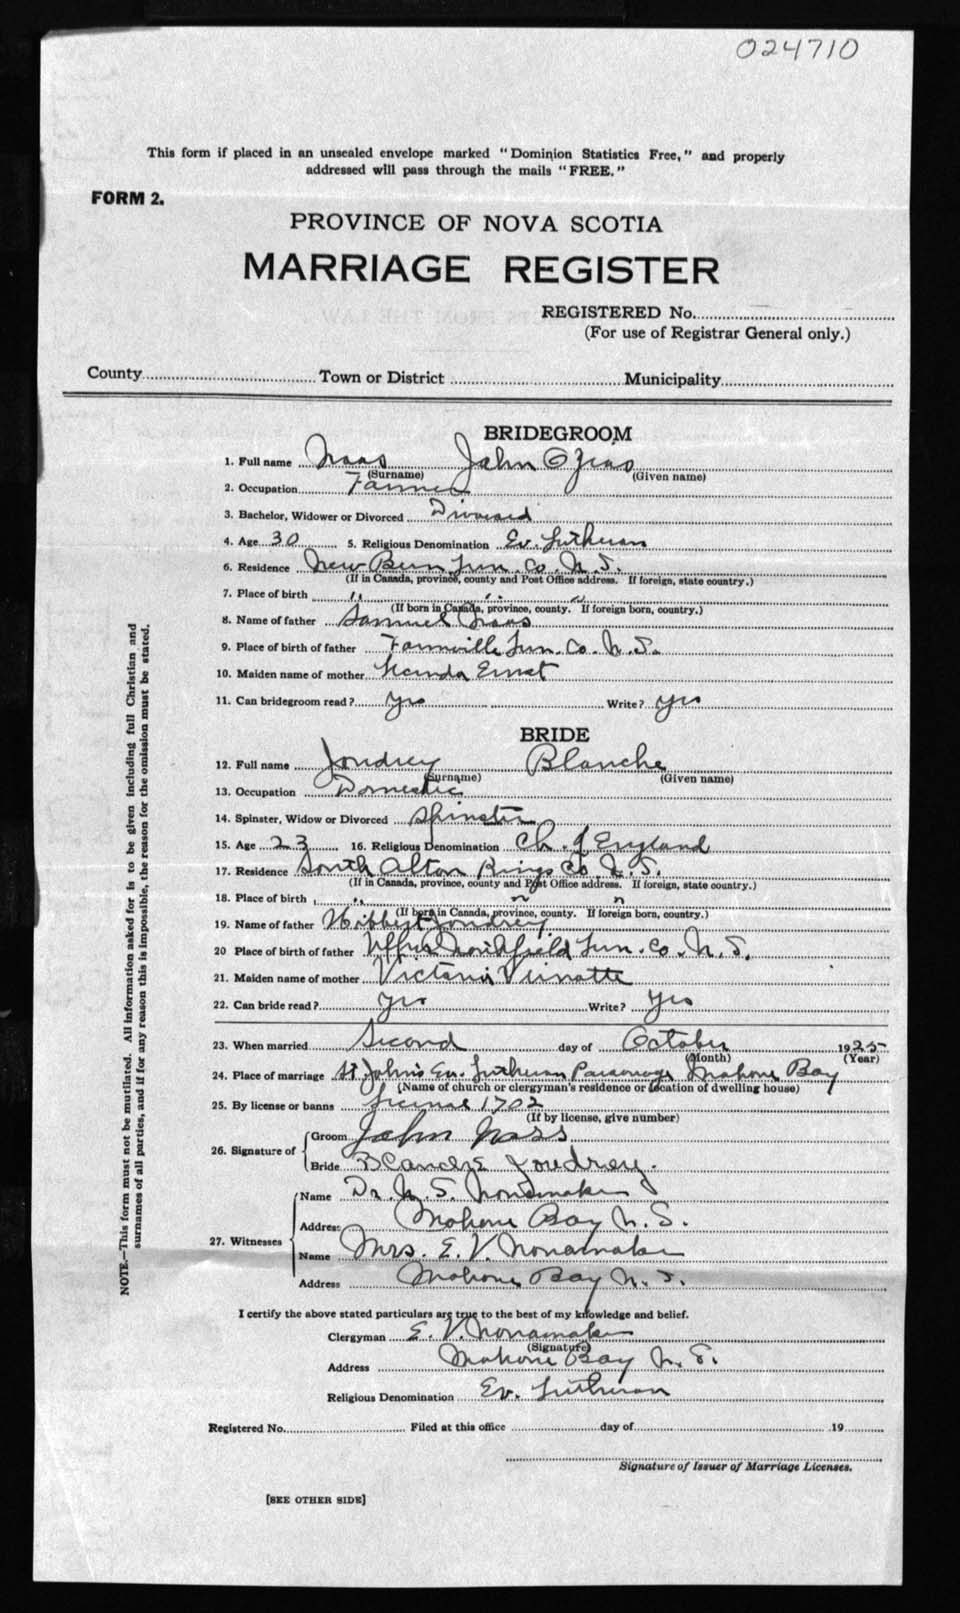 024710
This form if placed in an unsealed envelope marked "Dominion Statistics Free," and properly
addressed will pass through the mails "FREE."
FORM 2.
PROVINCE OF NOVA SCOTIA
MARRIAGE REGISTER
REGISTERED No.
(For use of Registrar General only.)
County Town or District Municipality
BRIDEGROOM
1. Full name Naas John Ozias
(Surname) (Given name)
2. Occupation Farmer
3. Bachelor, Widower or Divorced Divorced
4. Age 30 5. Religious Denomination Ev. Lutheran
6. Residence New Burn Lun. Co. N.S.
(If in Canada, province, county and Post Office address. If foreign, state country.)
7. Place of birth " " "
(If born in Canada, province, county. If foreign born, country.)
8. Name of father Samuel Naas
9. Place of birth of father Farmville Lun. Co. N.S.
10. Maiden name of mother Ernst
11. Can bridegroom read? yes Write? yes
BRIDE
12. Full name Joudrey Blanche
(Surname) (Given name)
13. Occupation Domestic
14. Spinster, Widow or Divorced Spinster
15. Age 23 16. Religious Denomination Ch. of England
17. Residence South Alton Kings Co. N.S.
(If in Canada, province, county and Post Office address. If foreign, state country.)
18. Place of birth " " "
(If born in Canada, province, county. If foreign born, country.)
19. Name of father Joudrey
20 Place of birth of father Upper Northfield Lun. Co. N.S.
21. Maiden name of mother Victoria Veinotte
22. Can bride read? yes Write? yes
23. When married Second day of October 1925
(Month) (Year)
24. Place of marriage St. John's Ev. Lutheran Parsonage Mahone Bay
(Name of church or clergyman's residence or location of dwelling house)
25. By license or banns License 1702
(If by license, give number)
26. Signature of Groom John Nass
Bride Blanche Joudrey.
27. Witnesses Name Dr. N. S. Nonamaker
Address Mahone Bay N.S.
Name Mrs. E. V. Nonamaker
Address Mahone Bay N.S.
I certify the above stated particulars are true to the best of my knowledge and belief.
Clergyman E. V. Nonamaker
(Signature)
Address Mahone Bay N.S.
Religious Denomination Ev. Lutheran
Registered No. Filed at this office day of 19
Signature of Issuer of Marriage Licenses.
[SEE OTHER SIDE]
NOTE.—This form must not be mutilated. All information asked for is to be given including full Christian and
surnames of all parties, and if for any reason this is impossible, the reason for the omission must be stated.